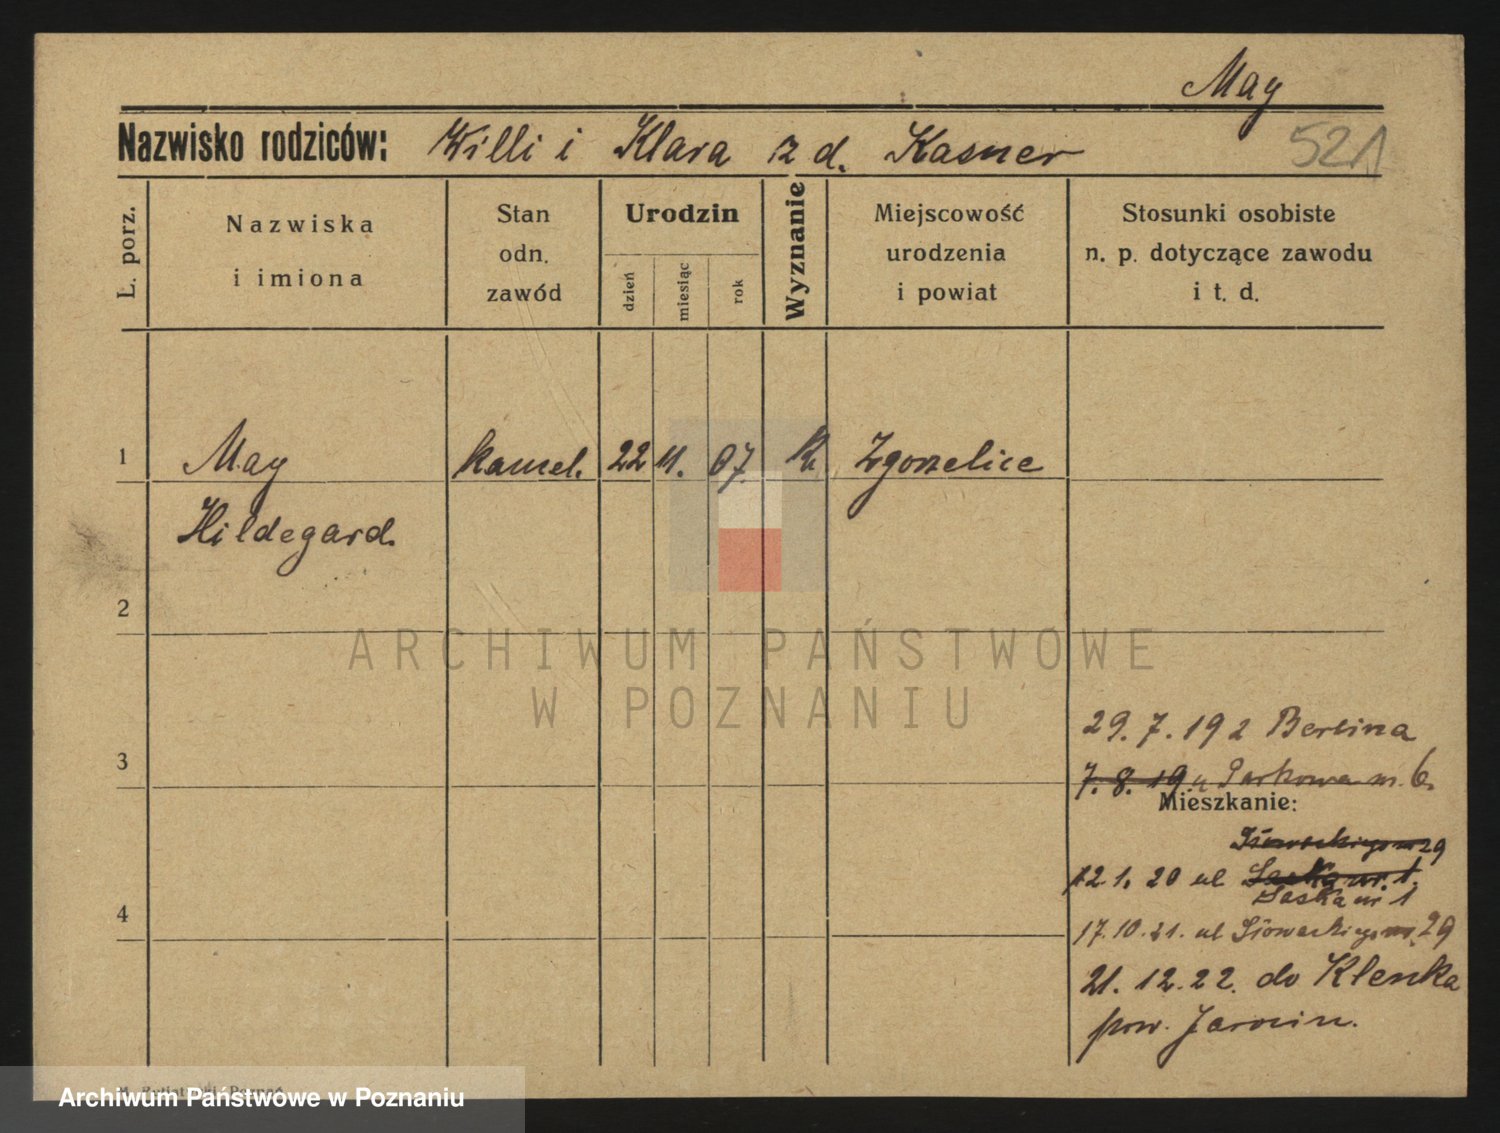 May
Nazwisko rodziców: Willi i Klara z d. Kasner
521
L. porz.
Nazwiska
i imiona
Stan
odn.
zawód
Urodzin
dzień
miesiąc
rok
Wyznanie
Miejscowość
urodzenia
i powiat
Stosunki osobiste
n. p. dotyczące zawodu
i t. d.
1 May kancel. 22 11. 07 K Zgorzelice
Hildegard.
2
ARCHIWUM PAŃSTWOWE
W POZNANIU
29. 7. 192 Berlina
3
7. 8. 19 u Parkowa nr. 6.
Mieszkanie:
Słowackiego nr 29
12. 1. 20 ul Saska nr. 1.
Saska nr 1
4
17. 10. 21. ul Słowackiego nr. 29
21. 12. 22. do Klenka
pow. Jarocin.
Poznań
Archiwum Państwowe w Poznaniu